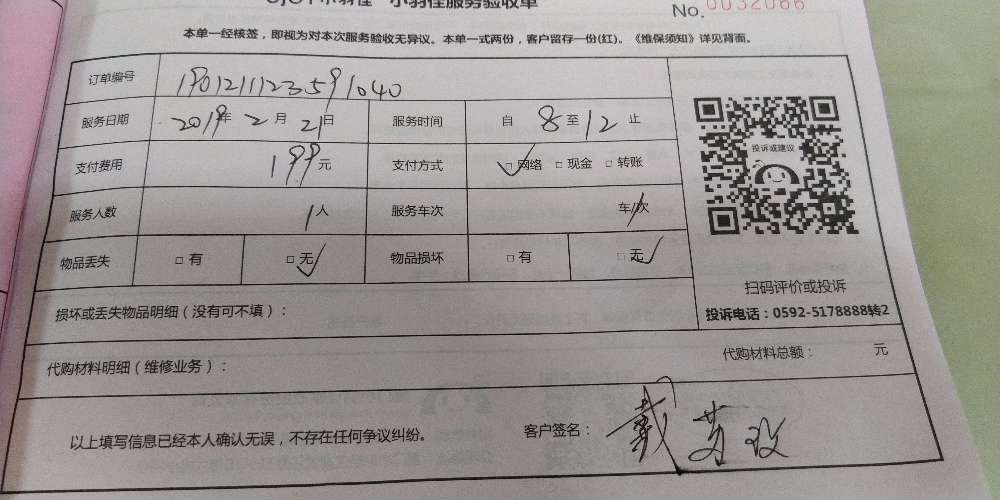 小羽佳服务验收单
No. 0032066
本单一经核签，即视为对本次服务验收无异议。本单一式两份，客户留存一份(红)。《维保须知》详见背面。
订单编号 190121112359 1040
服务日期 2019年 2月 21日 服务时间 自 8 至 12 止
支付费用 199元 支付方式 □网络 □现金 □转账
服务人数 1人 服务车次 车/次
物品丢失 □有 □无 物品损坏 □有 □无
投诉或建议
扫码评价或投诉
投诉电话：0592-5178888转2
损坏或丢失物品明细（没有可不填）：
代购材料明细（维修业务）： 代购材料总额： 元
以上填写信息已经本人确认无误，不存在任何争议纠纷。 客户签名： 戴苏玫